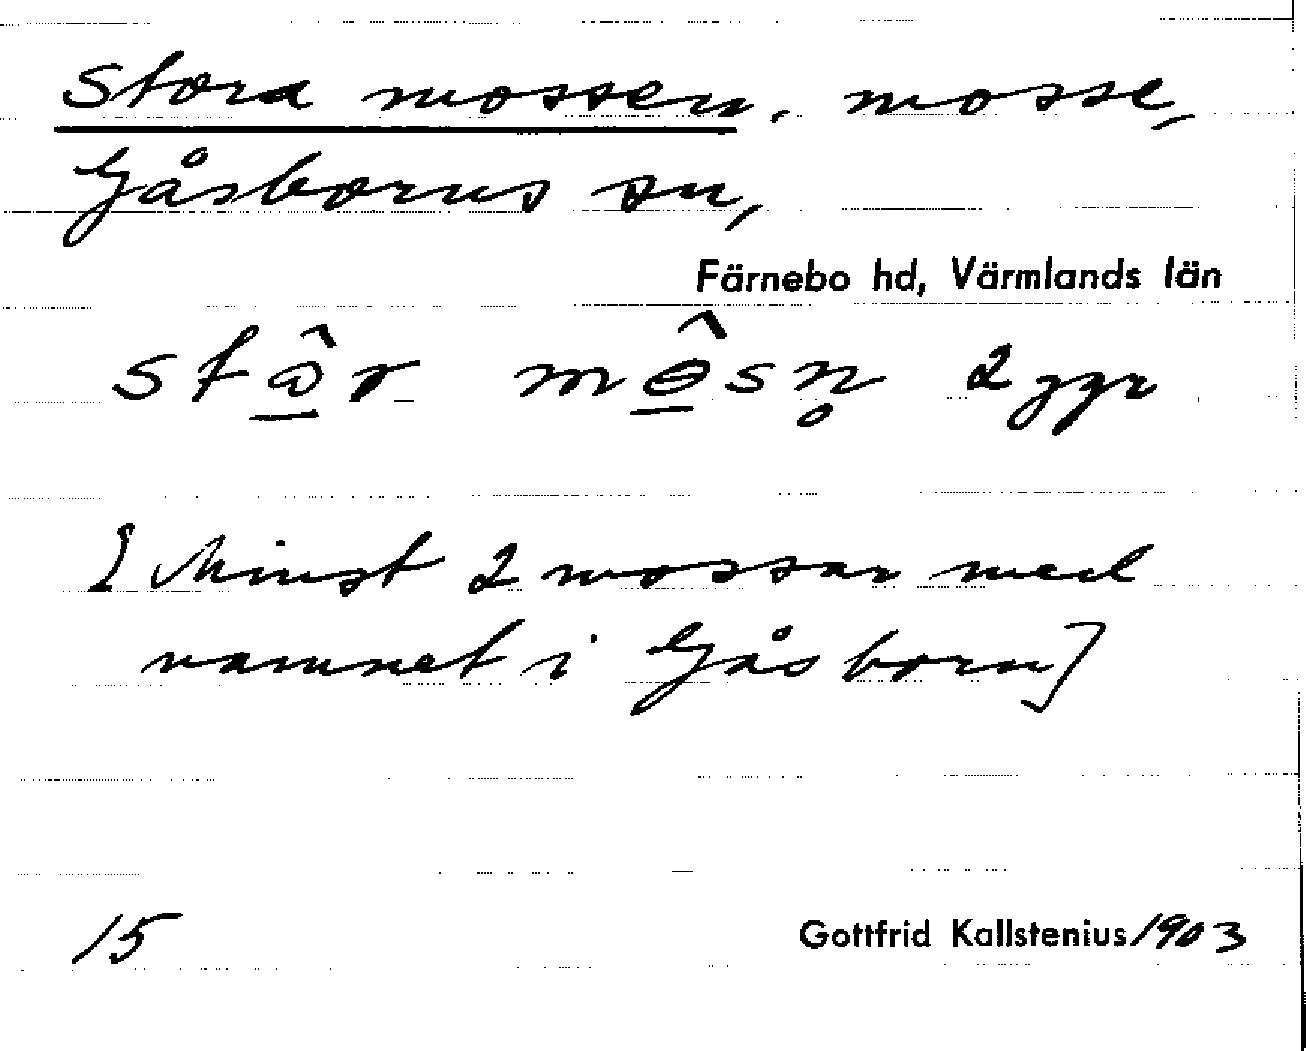 Stora mossen, mosse,
Gåsborns sn,
Färnebo hd, Värmlands län
stω̱̂r mɵ̱̂sn̥ 2 ggr
[Minst 2 mossar med
namnet i Gåsborn]
15 Gottfrid Kallstenius/1903